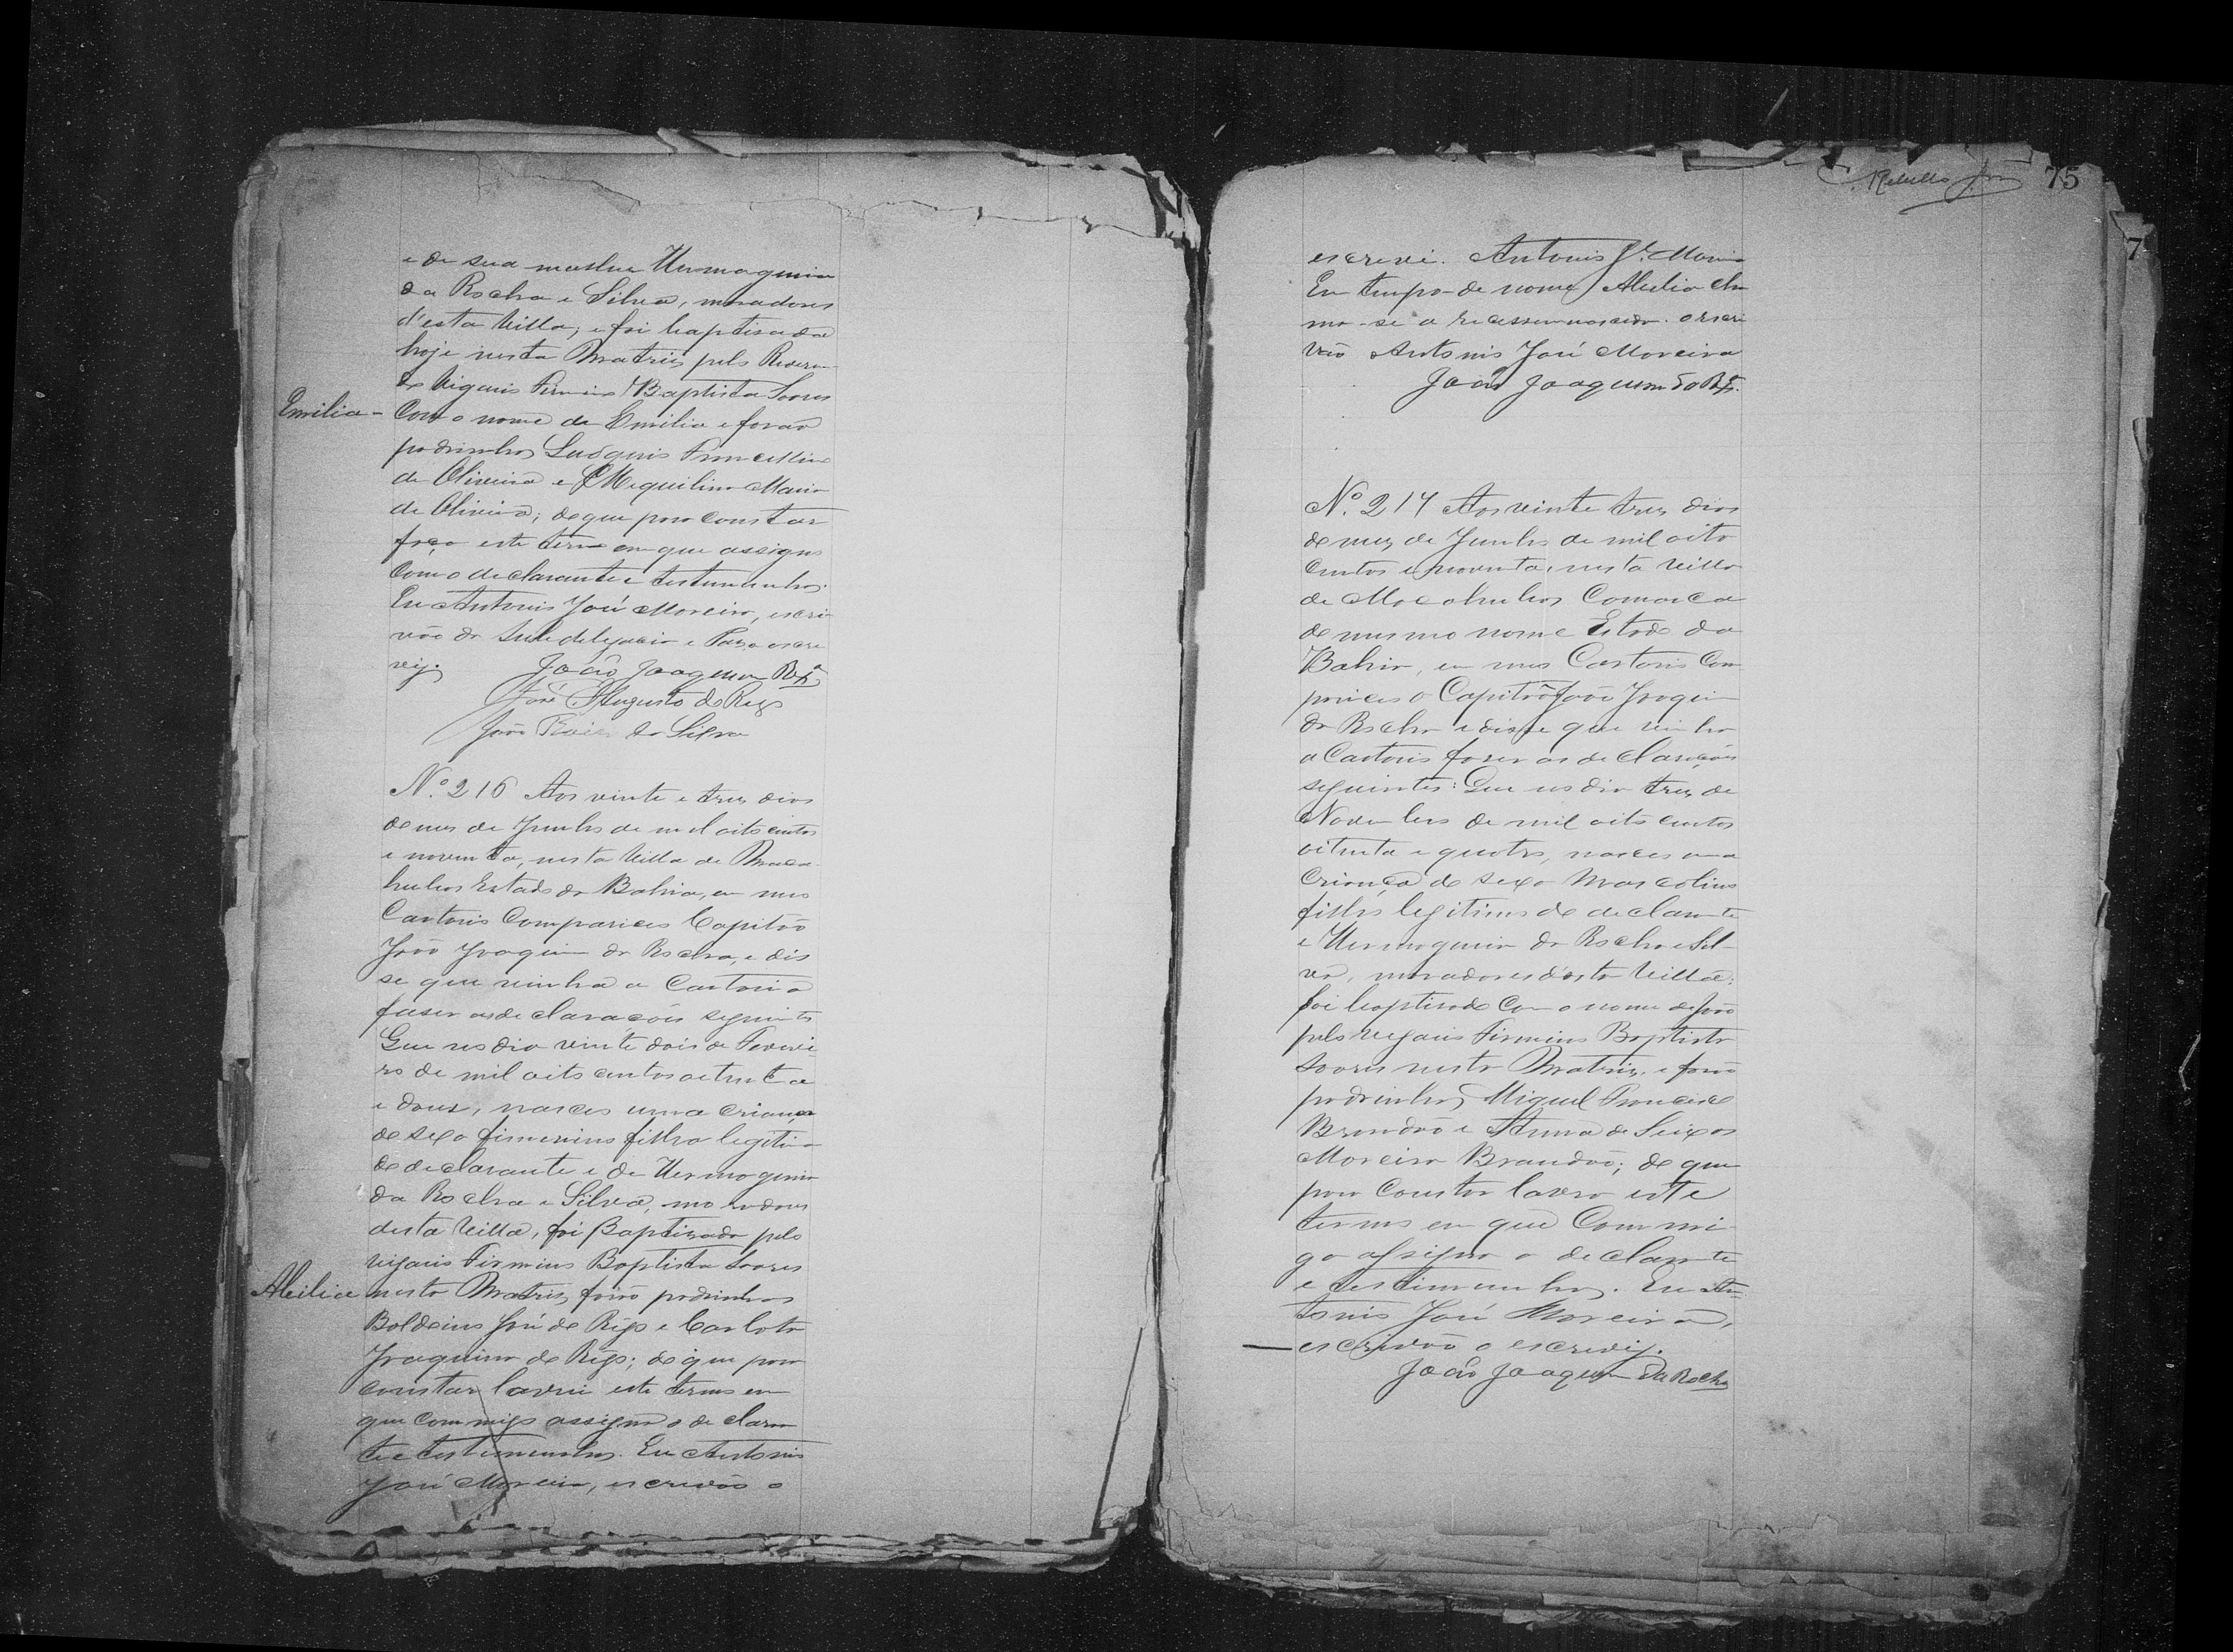 e de sua mulher Hermogenia
da Rocha e Silva, moradores
d'esta Villa; e foi baptisada
hoje nesta Matriz pelo Reveren-
do Vigario Firmino Baptista Soares
Emilia - Com o nome de Emilia e forão
padrinhos Francellino
de Oliveira e Maria
de Oliveira; de que para constar
faço este termo em que assigno
com o declarante e testemunhas.
Eu Antonio José Moreira, escri-
vão da Subdelegacia e Paz o escre
vij. João Joaquim Rxª
José Augusto do Rego
João da Silva
Nº. 216 Aos vinte e tres dias
do mes de Junho de mil oitocentos
e noventa, nesta Villa de Maca-
hubas Estado da Bahia, em meo
Cartorio Compareceo Capitão
João Joaquim da Rocha, e dis
se que vinha a Cartorio
faser as declaracões seguintes
Que no dia vinte dois de Feverei
ro de mil oito centos oitenta
e dous, nasceo uma criança
do sexo femenino filha legitima
do declarante e de Hermogenia
da Rocha e Silva, moradores
desta Villa, foi Baptisada pelo
vigario Firmino Baptista Soares
Alcilia nesta Matriz, forão padrinhos
Baldoino José do Rego e Carlota
Joaquina do Rego; do que para
constar lavrei este termo em
que commigo assigna o declaran
te e testemunhas. Eu Antonio
José Moreira, escrevão o
75
7
escrevi. Antonio Jé. Moreira
Em tempo de nome Alcilia cha
ma-se a recemnascida. o escri
vão Antonio José Moreira
João Joaquim da Rxª.
Nº. 217 Aos vinte tres dias
do mez de Junho de mil oito
centos e noventa, nesta Villa
de Macahubas Comarca
do mesmo nome Estado da
Bahia, em meo Cartorio Com
pareceo o Capitão João Joaquim
da Rocha e disse que vinha
a Cartorio faser as declarações
seguintes: Que no dia tres de
Novembro de mil oito centos
oitenta e quatro, nasceo uma
criança do sexo Mascolino
filho legitimo do declarante
e Hermogenia da Rocha e Sil-
va, moradores d'esta Villa:
foi baptisado com o nome de João
pelo vigario Firmino Baptista
Soares nesta Matriz, e forão
padrinhos Miguel Francisco
Brandão e Anna de Seixas
Moreira Brandão; do que
para constar lavro este
termo em que Commi-
go assigna o declarante
e testimunhas. Eu An-
tonio José Moreira,
escrivão o escrevij.
João Joaquim da Rocha